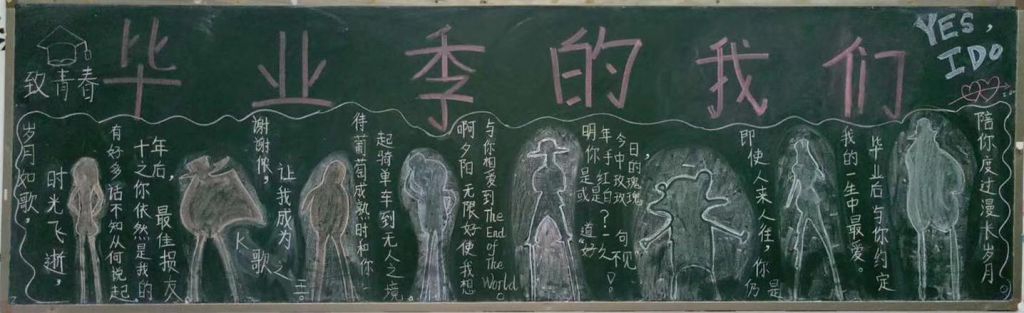 毕业季的我们
致青春
YES,
I DO
岁月如歌,
时光飞逝,
有好多话不知从何说起
十年之后,
你依然是我的
最佳损友
谢谢你,
让我成为
K歌之王。
待葡萄成熟时和你
起骑单车到无人之境
啊夕阳无限好使我想
与你相爱到The End of The World
明年今日
你手中的
是红玫瑰,
或是白玫瑰
?
道一句
"好久不见"
即使人来人往,你仍是
我的一生中最爱。
毕业后与你约定
陪你度过漫长岁月